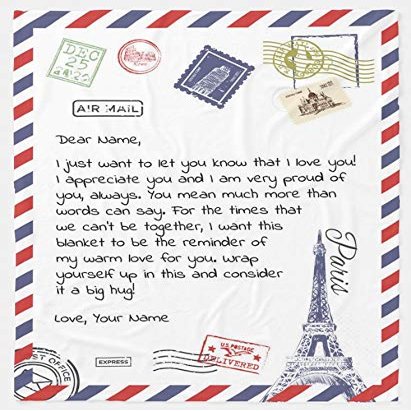 DEC
25
AIR MAIL
Dear Name,
I just want to let you know that I love you!
I appreciate you and I am very proud of
you, always. You mean much more than
words can say. For the times that
we can't be together, I want this
blanket to be the reminder of
my warm love for you. Wrap
yourself up in this and consider
it a big hug!
Love, Your Name
Paris
POST OFFICE
EXPRESS
U.S. POSTAGE
DELIVERED